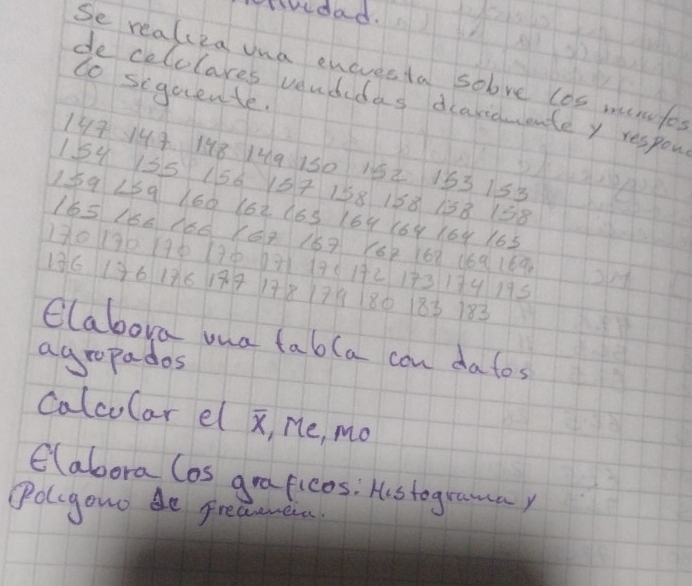 Se realiza una encuesta sobre los minutos
de celulares vendidas diariamente y respon
lo siguiente.
147 147 148 149 150 152 153 153
154 155 156 157 158 158 158 158
159 159 160 162 163 164 164 164 165
165 166 166 167 167 168 168 169 169
170 170 170 170 171 171 172 173 174 175
176 176 176 177 178 179 180 183 183
Elabora una tabla con datos
agropados
Calcular el x̄, Me, mo
Elabora los graficos: Histograma y
Poligono de frecuencia.